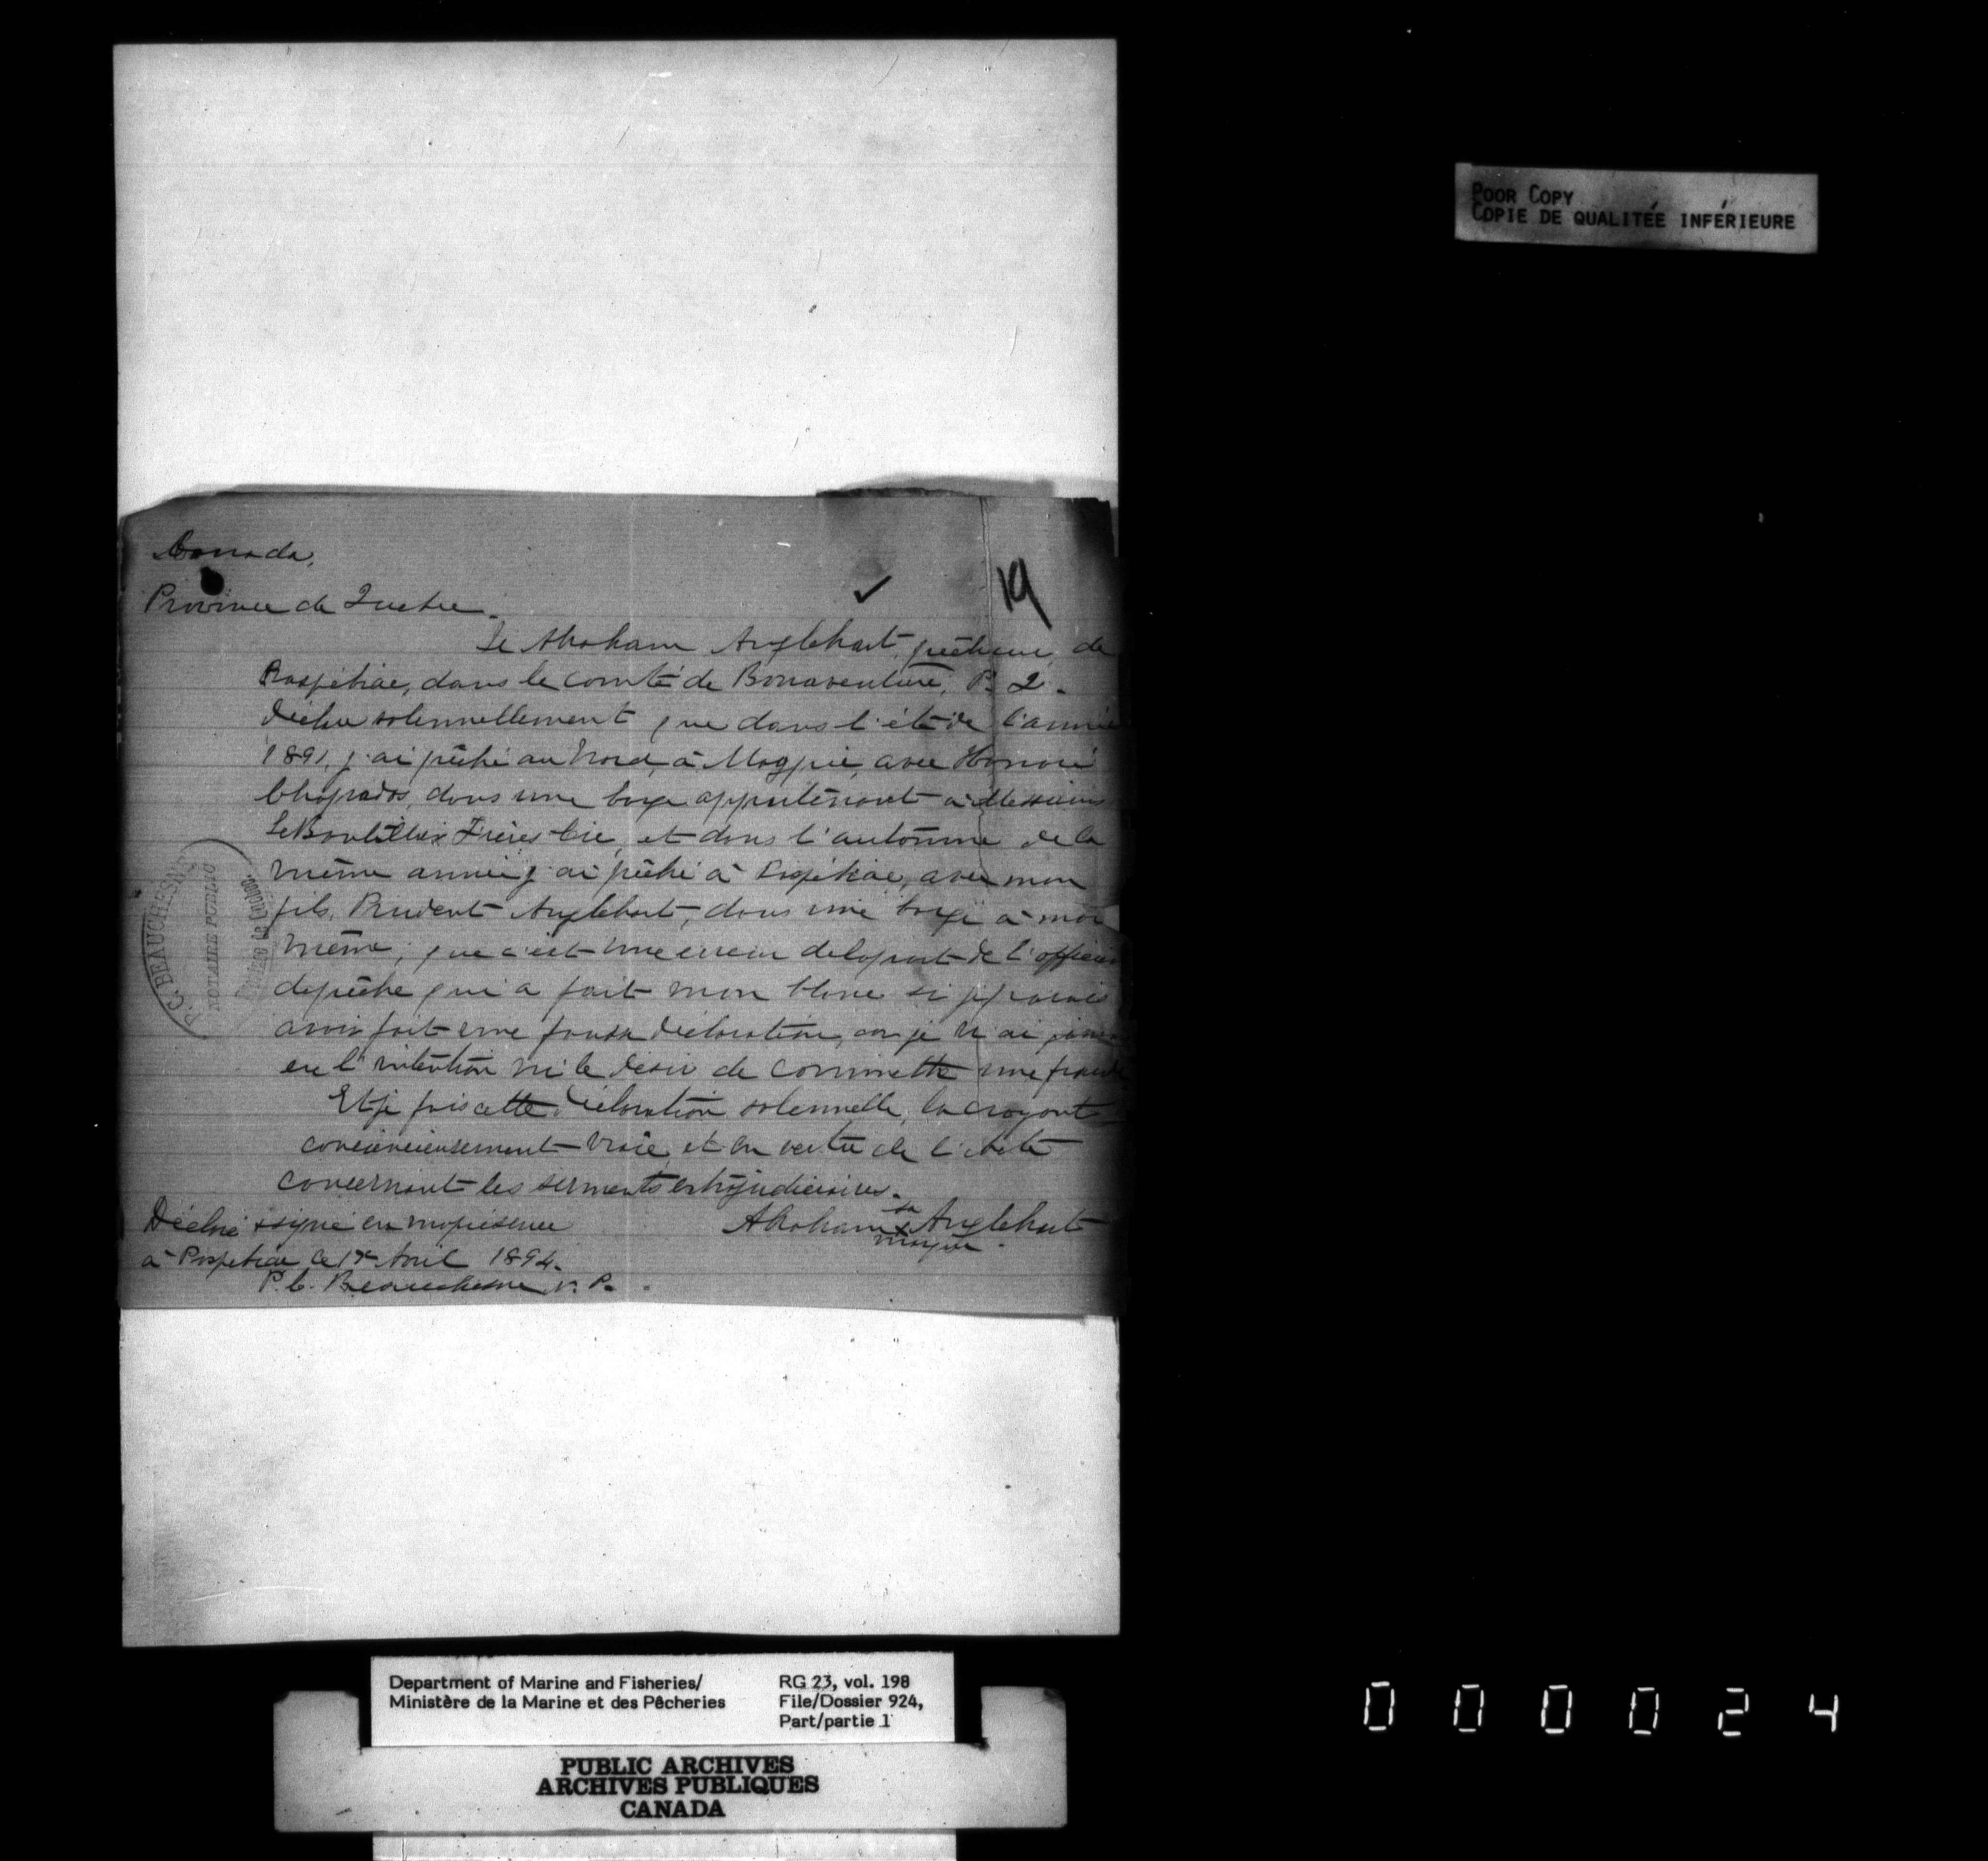 POOR COPY
COPIE DE QUALITÉE INFÉRIEURE
Canada,
Province de Quebec.
19
Je Abraham Anglehart, pêcheur, de
Paspébiac, dans le comté de Bonaventure, P. Q.
déclare solennellement que dans l'été de l'année
1891, j'ai pêché au Nord, à Magpie, avec Honoré
Chapados, dans une barge appartenant à Messieurs
LeBoutillier Frères Cie, et dans l'automne de la
même année j'ai pêché à Paspébiac, avec mon
fils, Prudent Anglehart, dans une barge à moi
même; que c'est une erreur de la part de l'officier
de pêche qui a fait mon blanc si je parais
avoir fait une fausse déclaration, car je n'ai jamais
eu l'intention ni le désir de commettre une fraude
Et je fais cette déclaration solennelle, la croyant
consciencieusement vraie, et en vertu de l'Acte
concernant les serments extrajudiciaires.
Déclaré & signé en ma présence
à Paspebiac le Avril 1894.
P. C. Beauchesne N. P.
sa
Abraham x Anglehart
marque
P. C. BEAUCHESNE
NOTAIRE PUBLIC
Department of Marine and Fisheries/
Ministère de la Marine et des Pêcheries
RG 23, vol. 198
File/Dossier 924,
Part/partie 1
PUBLIC ARCHIVES
ARCHIVES PUBLIQUES
CANADA
000024